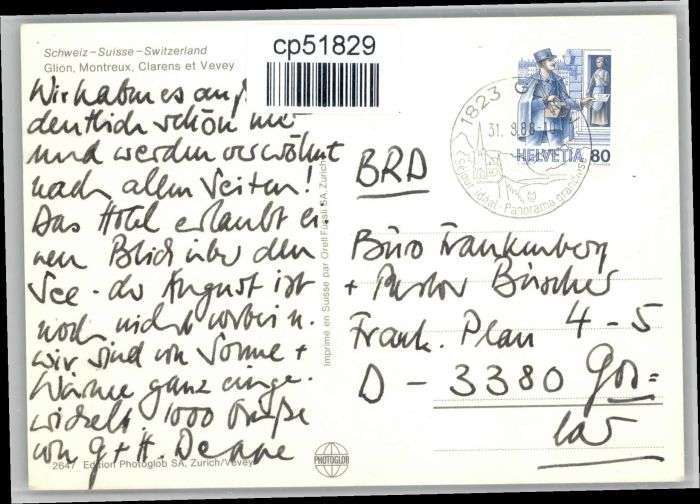 Schweiz – Suisse – Switzerland
Glion, Montreux, Clarens et Vevey
cp51829
Wir haben es au
dentlich schön hier
und werden verwöhnt
nach allen Seiten!
Das Hotel erlaubt ei-
nen Blick über den
See - der August ist
noch nicht vorbei u.
wir sind von Sonne +
Wärme ganz einge-
wickelt. 1000 Grüße
von G + H.
2647 Edition Photoglob SA, Zurich/Vevey
Imprimé en Suisse par Orell Füssli SA, Zurich
PHOTOGLOB
1823 G
31. 9.88
Séjour idéal. Panorama grandiose
HELVETIA 80
BRD
Büro Frankenberg
+ Pastor Büscher
Frank. Plan 4-5
D - 3380 Gos=
lar